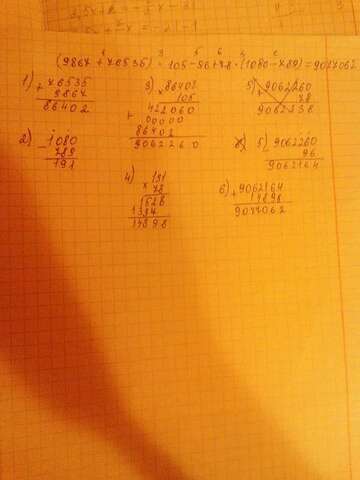 (9867+76535)·105-96+78·(1080-889)=9077062
1) + 76535
9867
86402
2) - 1080
889
191
3) × 86402
105
+ 422060
00000
86402
9062260
4) 191
× 78
1528
1337
14898
5) 9062260
78
9062338
5) 9062260
96
9062164
6) + 9062164
14898
9077062